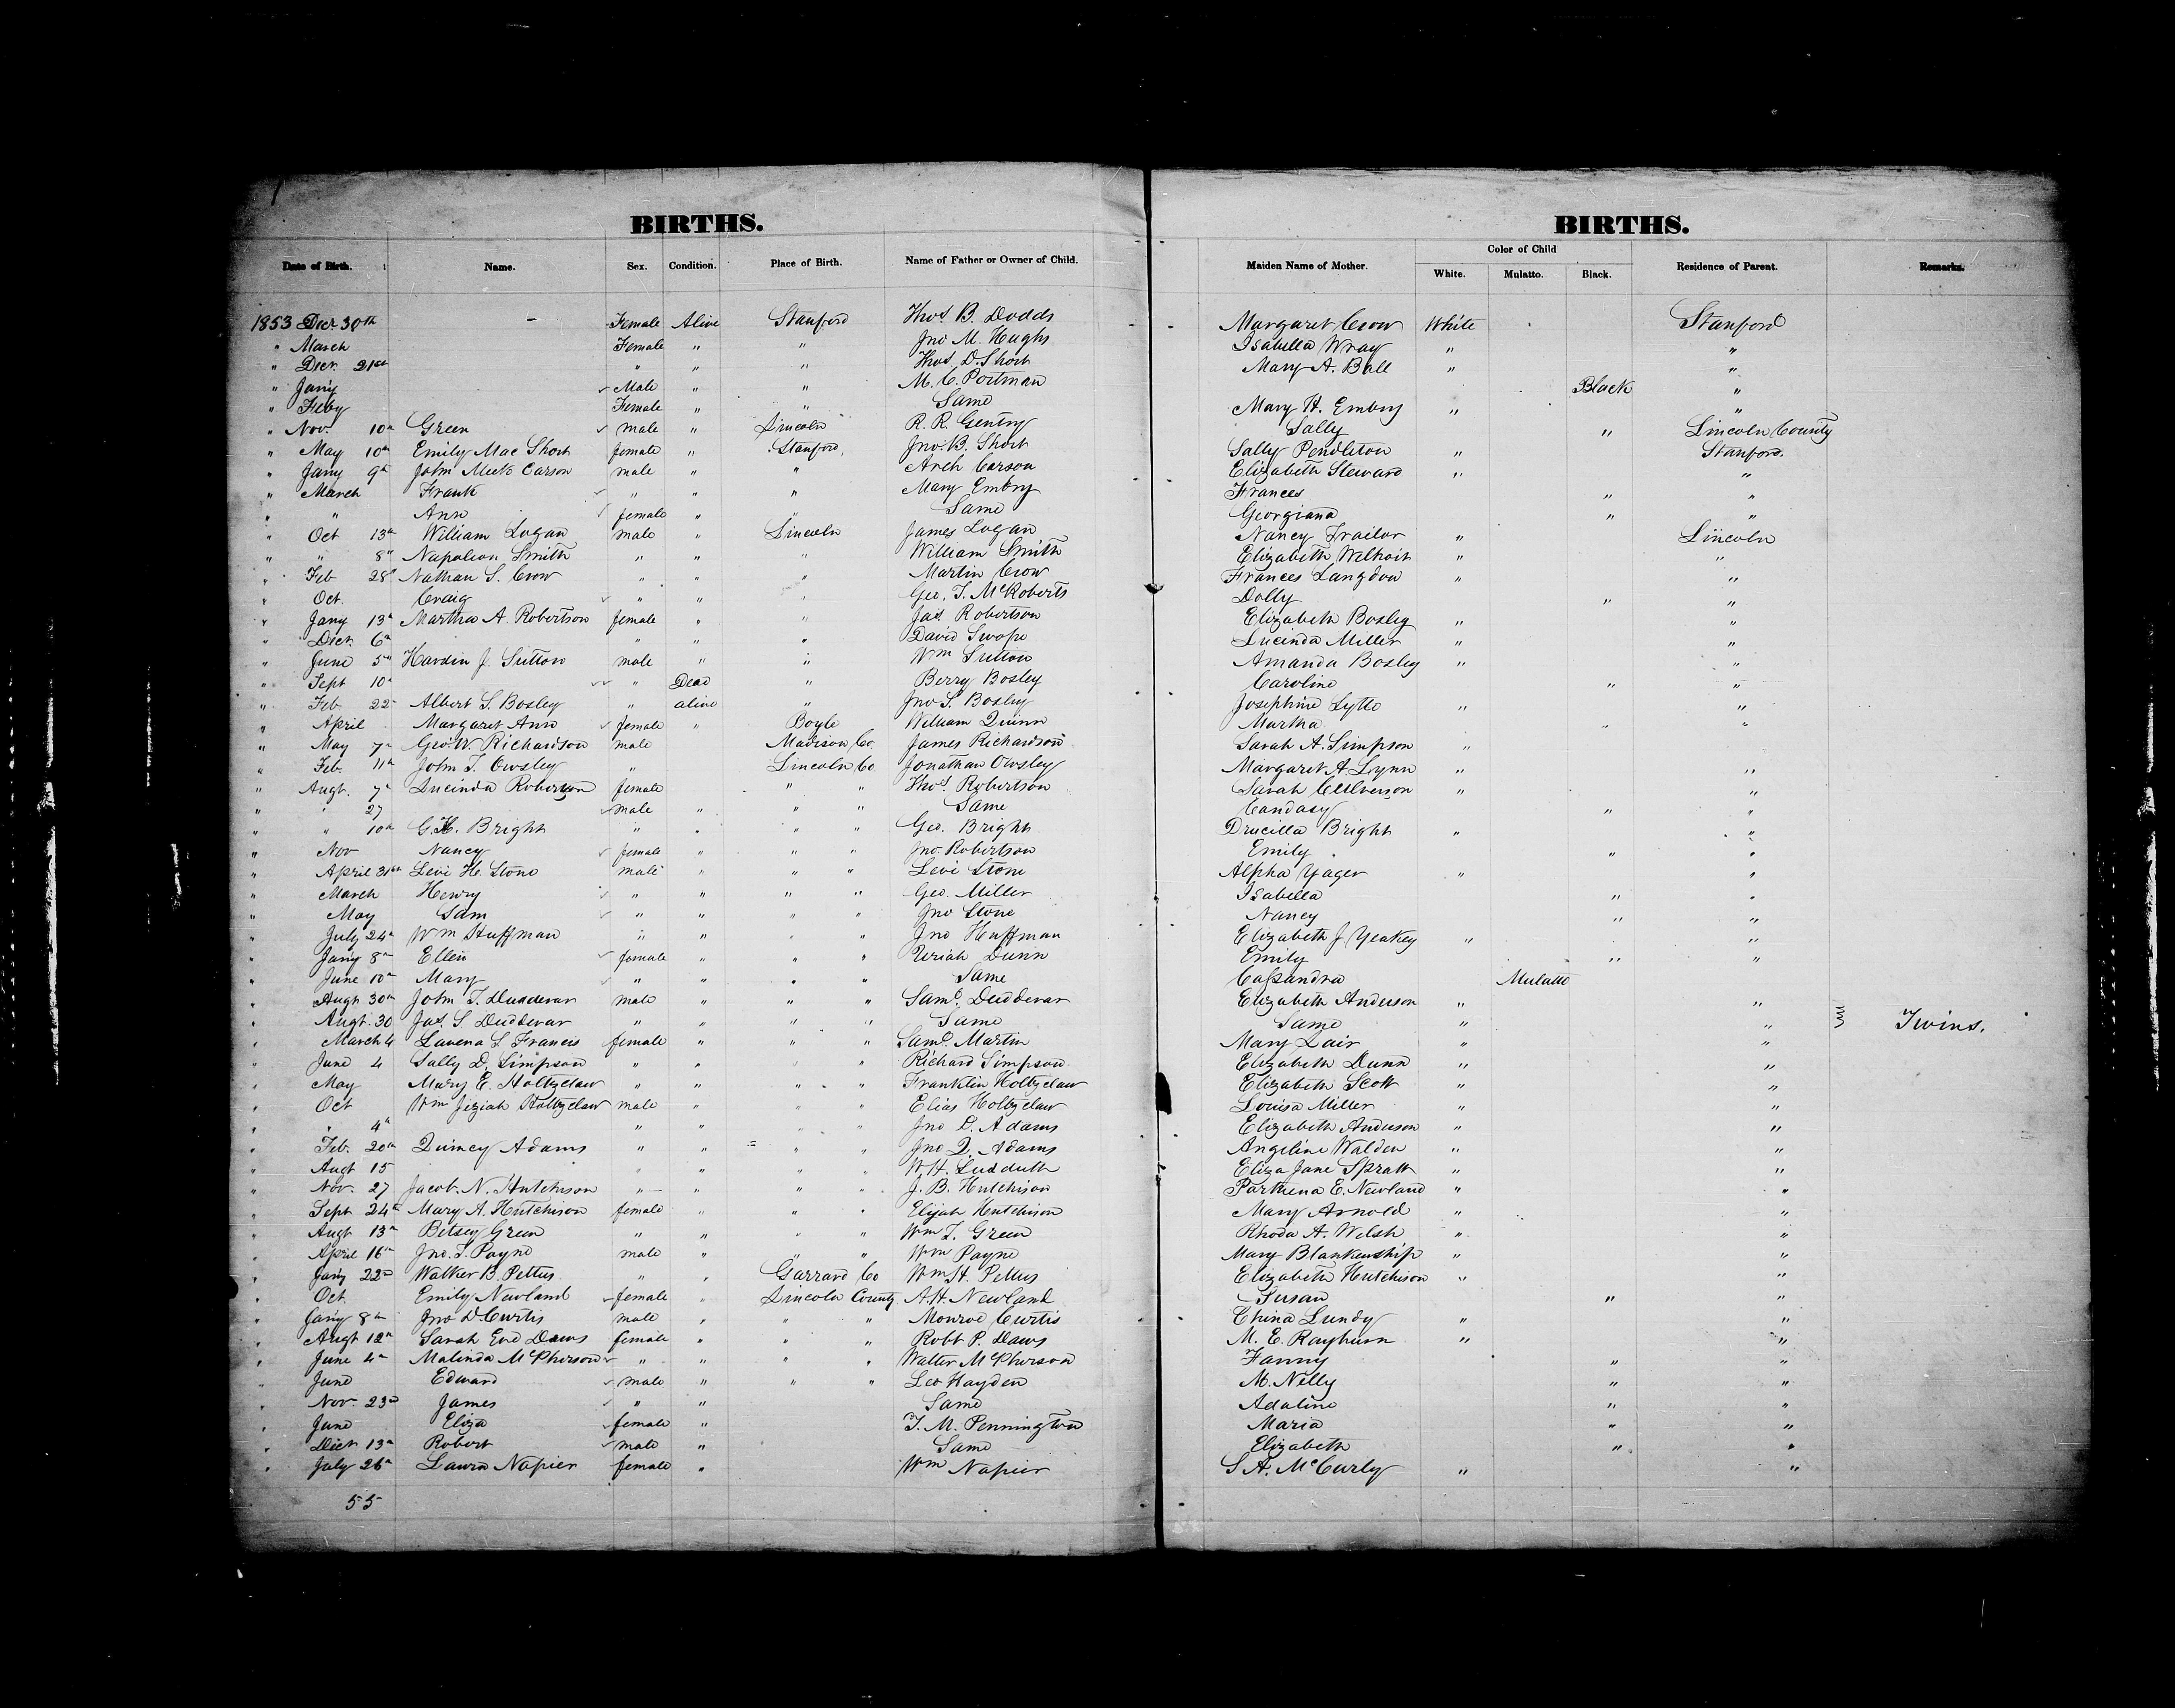 BIRTHS. BIRTHS.
Color of Child
Date of Birth. Name. Sex. Condition. Place of Birth. Name of Father or Owner of Child. Maiden Name of Mother. White. Mulatto. Black. Residence of Parent. Remarks.
1853 Decr 30th - Female Alive Stanford Thos. B. Dodds Margaret Crow White Stanford
" March Female " " Jno M. Hughs Isabella Wray " "
" Decr 21st " " " Thos D. Short Mary A. Ball " "
" Jany Male " " M. C. Portman Black "
" Feby Female " " Same Mary H. Embry " "
" Nov. 10th Green male " Lincoln R. R. Gentry Sally " Lincoln County
" May 10th Emily Mac Short female " Stanford Jno. B. Short Sally Pendleton " Stanford.
" Jany 9th John Meek Carson male " " Arch Carson Elizabeth Steward " "
" March Frank " " " Mary Embry Frances " "
" " Ann female " " Same Georgiana " "
" Oct 13th William Logan male " Lincoln James Logan Nancy Trailor " Lincoln
" " 8th Napoleon Smith " " " William Smith Elizabeth Welhoit " "
" Feb 28th Nathan S. Crow " " " Martin Crow Frances Langdon " "
" Oct. Craig " " " Geo. T. McRoberts Dolly " "
" Jany 13th Martha A. Robertson female " " Jas. Robertson Elizabeth Bosley " "
" Decr. 6th " " " David Swope Lucinda Miller " "
" June 5th Hardin J. Sutton male " " Wm Sutton Amanda Bosley " "
" Sept 10th " Dead " Berry Bosley Caroline " "
" Feb 22 Albert S. Bosley " alive " Jno S. Bosley Josephine Lytle " "
" April Margaret Ann female " Boyle William Quinn Martha " "
" May 7th Geo. W. Richardson male Madison Co. James Richardson Sarah A. Simpson "
" Feb. 11th John T. Owsley " Lincoln Co Jonathan Owsley Margaret A. Lynn " "
" Augt. 7th Lucinda Robertson female " " Thos. Robertson Sarah " "
" " 27 male " " " Same Candasy " "
" " 10th G. H. Bright " " " " Geo. Bright Drucilla Bright " "
" Nov Nancy female " " " Jno. Robertson Emily " "
" April 31st Levi H. Stone male " " " Levi Stone Alpha Yager " "
" March Henry " " " " Geo. Miller Isabella " "
" May Sam " " " " Jno Stone Nancy " "
" July 24th Wm Huffman " " " " Jno Huffman Elizabeth J. Yeakey " "
" Jany 8th Ellen female " " " Uriah Dunn Emily " "
" June 10th Mary " " " " Same Cassandra Mulatto
" Augt 30th John T. Dudderar male " " " Saml. Dudderar Elizabeth Anderson " "
" Augt. 30 Jas. S. Dudderar " " " " Same Same " " Twins.
" March 4 Lavena L Francis female " " " Saml. Martin Mary Lair " "
" June 4 Sally D. Simpson " " " " Richard Simpson Elizabeth Dunn " "
" May Mary E. Holtzclaw " " " " Franklin Holtzclaw Elizabeth Scott " "
" Oct Wm Jeziah Holtzclaw male " " " Elias Holtzclaw Louisa Miller " "
" " 4th " " " " Jno D. Adams Elizabeth Anderson " "
" Feb. 20th Quincy Adams " " " " Jno Q. Adams Angeline Walden " "
" Augt 15 " " " " W. H. Sudduth Eliza Jane Spratt " "
" Nov. 27 Jacob. N. Hutchison " " " " J. B. Hutchison Parthena E. Newland " "
" Sept 24th Mary A. Hutchison female " " " Elijah Hutchison Mary Arnold " "
" Augt 13th Betsey Green " " " " Wm T. Green Rhoda A. Welsh " "
" April 16th Jno. T. Payne male " " " Wm Payne Mary Blankenship " "
" Jany 22d Walker B. Pettus " " Garrard Co Wm H. Pettus Elizabeth Hutchison " "
" Oct. Emily Newland female " Lincoln County A. H. Newland Susan " "
" Jany 8th Jno D. Curtis male " " " Monroe Curtis China Lundy " "
" Augt 12th Sarah Daws female " " " Robt P. Daws M. E. Rayburn " "
" June 4th Malinda McPherson " " " " Walter McPherson Fanny " "
" June Edward male " " " Leo Hayden M. Nelly " "
" Nov. 23d James " " Same Adaline " "
" June Eliza female " T. M. Pennington Maria " "
" Decr 13th Robert male " Same Elizabeth " "
" July 26th Laura Napier female " Wm Napier S. A. McCurly " "
55